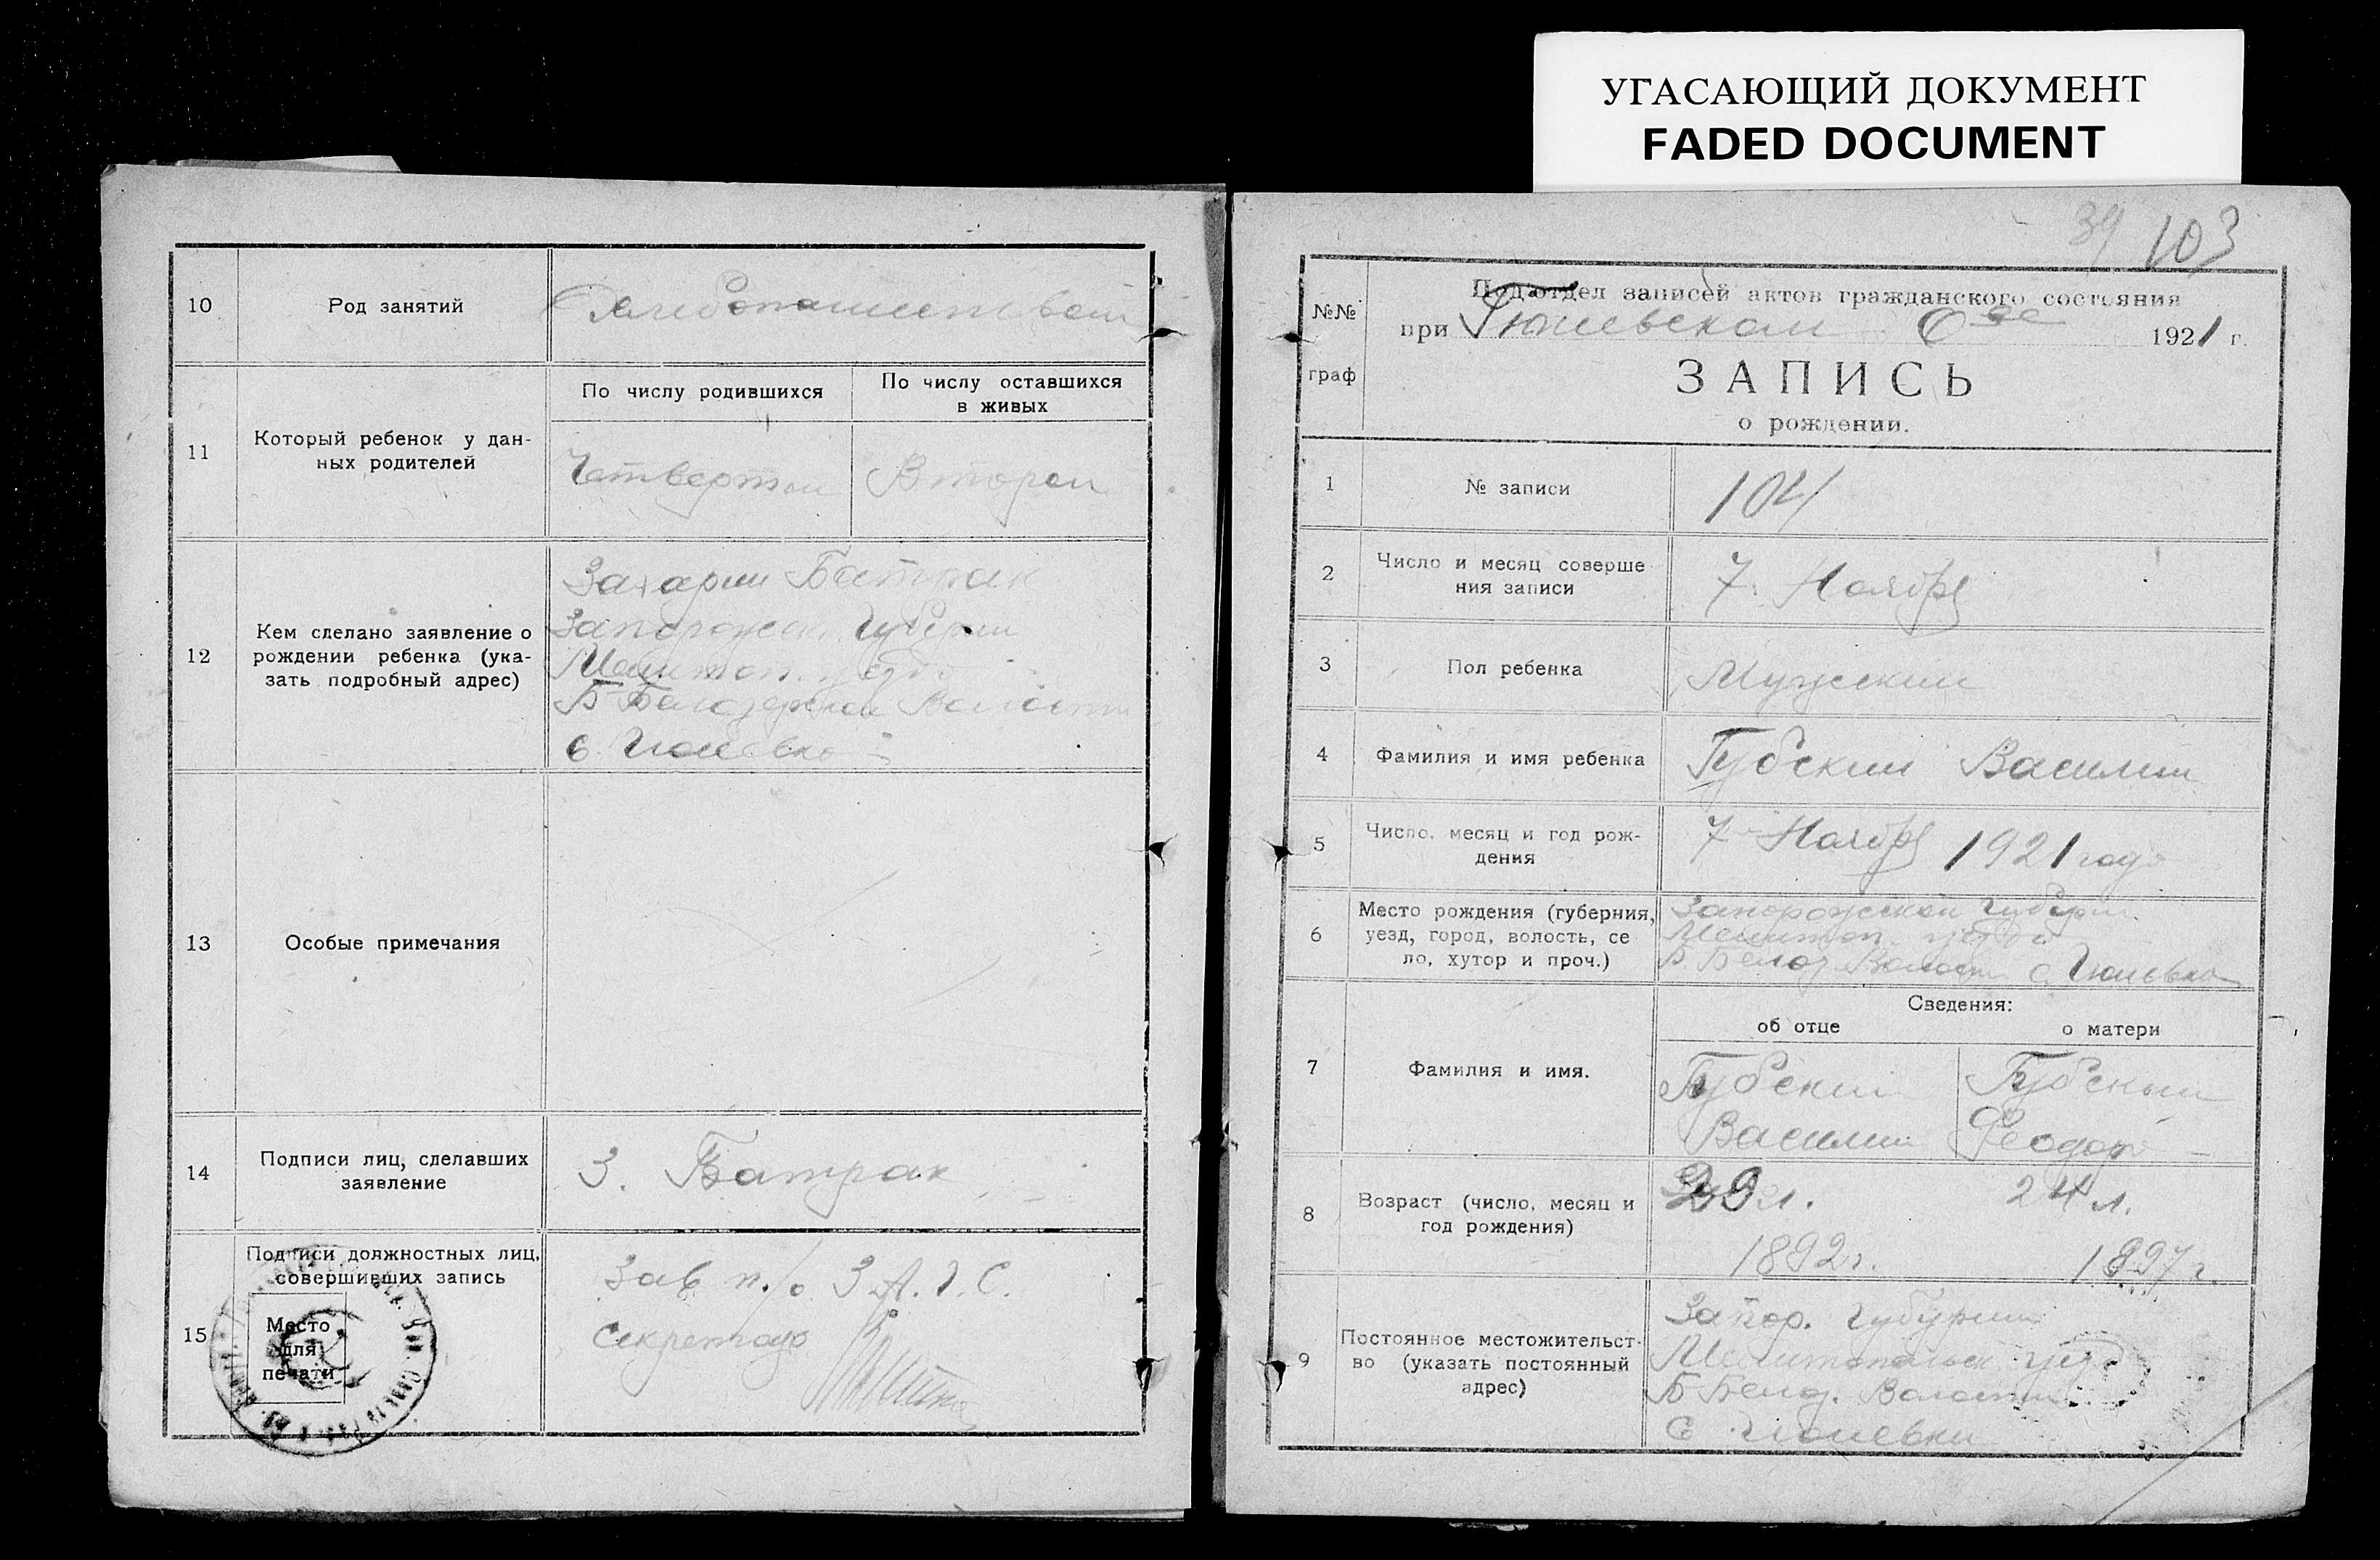 УГАСАЮЩИЙ ДОКУМЕНТ
FADED DOCUMENT
10
Род занятий
11
Который ребенок у дан-
ных родителей
По числу родившихся
По числу оставшихся
в живых
Четвертый
Второй
12
Кем сделано заявление о
рождении ребенка (ука-
зать подробный адрес)
Захарий Батрак
Запорожск. Губернии
Мелитоп. уезд.
Б Белозерской Волости
с.
13
Особые примечания
14
Подписи лиц, сделавших
заявление
З. Батрак
15
Подписи должностных лиц,
совершивших запись
Место
для
печати
Зав п./о З.А.Г.С.
Секретарь
39 103
№№
граф
Под'отдел записей актов гражданского состояния
при 1921 г.
ЗАПИСЬ
о рождении.
1
№ записи
104
2
Число и месяц соверше
ния записи
7 Ноября
3
Пол ребенка
Мужский
4
Фамилия и имя ребенка
Губский Василий
5
Число, месяц и год рож-
дения
7 Ноября 1921 года
6
Место рождения (губерния,
уезд, город, волость, се
ло, хутор и проч.)
Запорожской Губерн.
Мелитоп. уезда
Б. Белоз. Волости с.
Сведения:
об отце
о матери
7
Фамилия и имя.
Губский
Василий
Губский
Феодор
8
Возраст (число, месяц и
год рождения)
29 л.
1892 г.
24 л.
1897 г.
9
Постоянное местожительст-
во (указать постоянный
адрес)
Запор. Губернии
Мелитопольск. уезд
Б Белоз. Волости
С